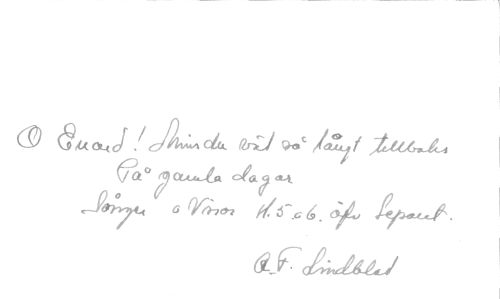 O Enard! Minns du väl så långt tillbaks
På gamla dagar
Sånger o Visor H.5 o 6. öfv Separat.
A.F. Lindblad